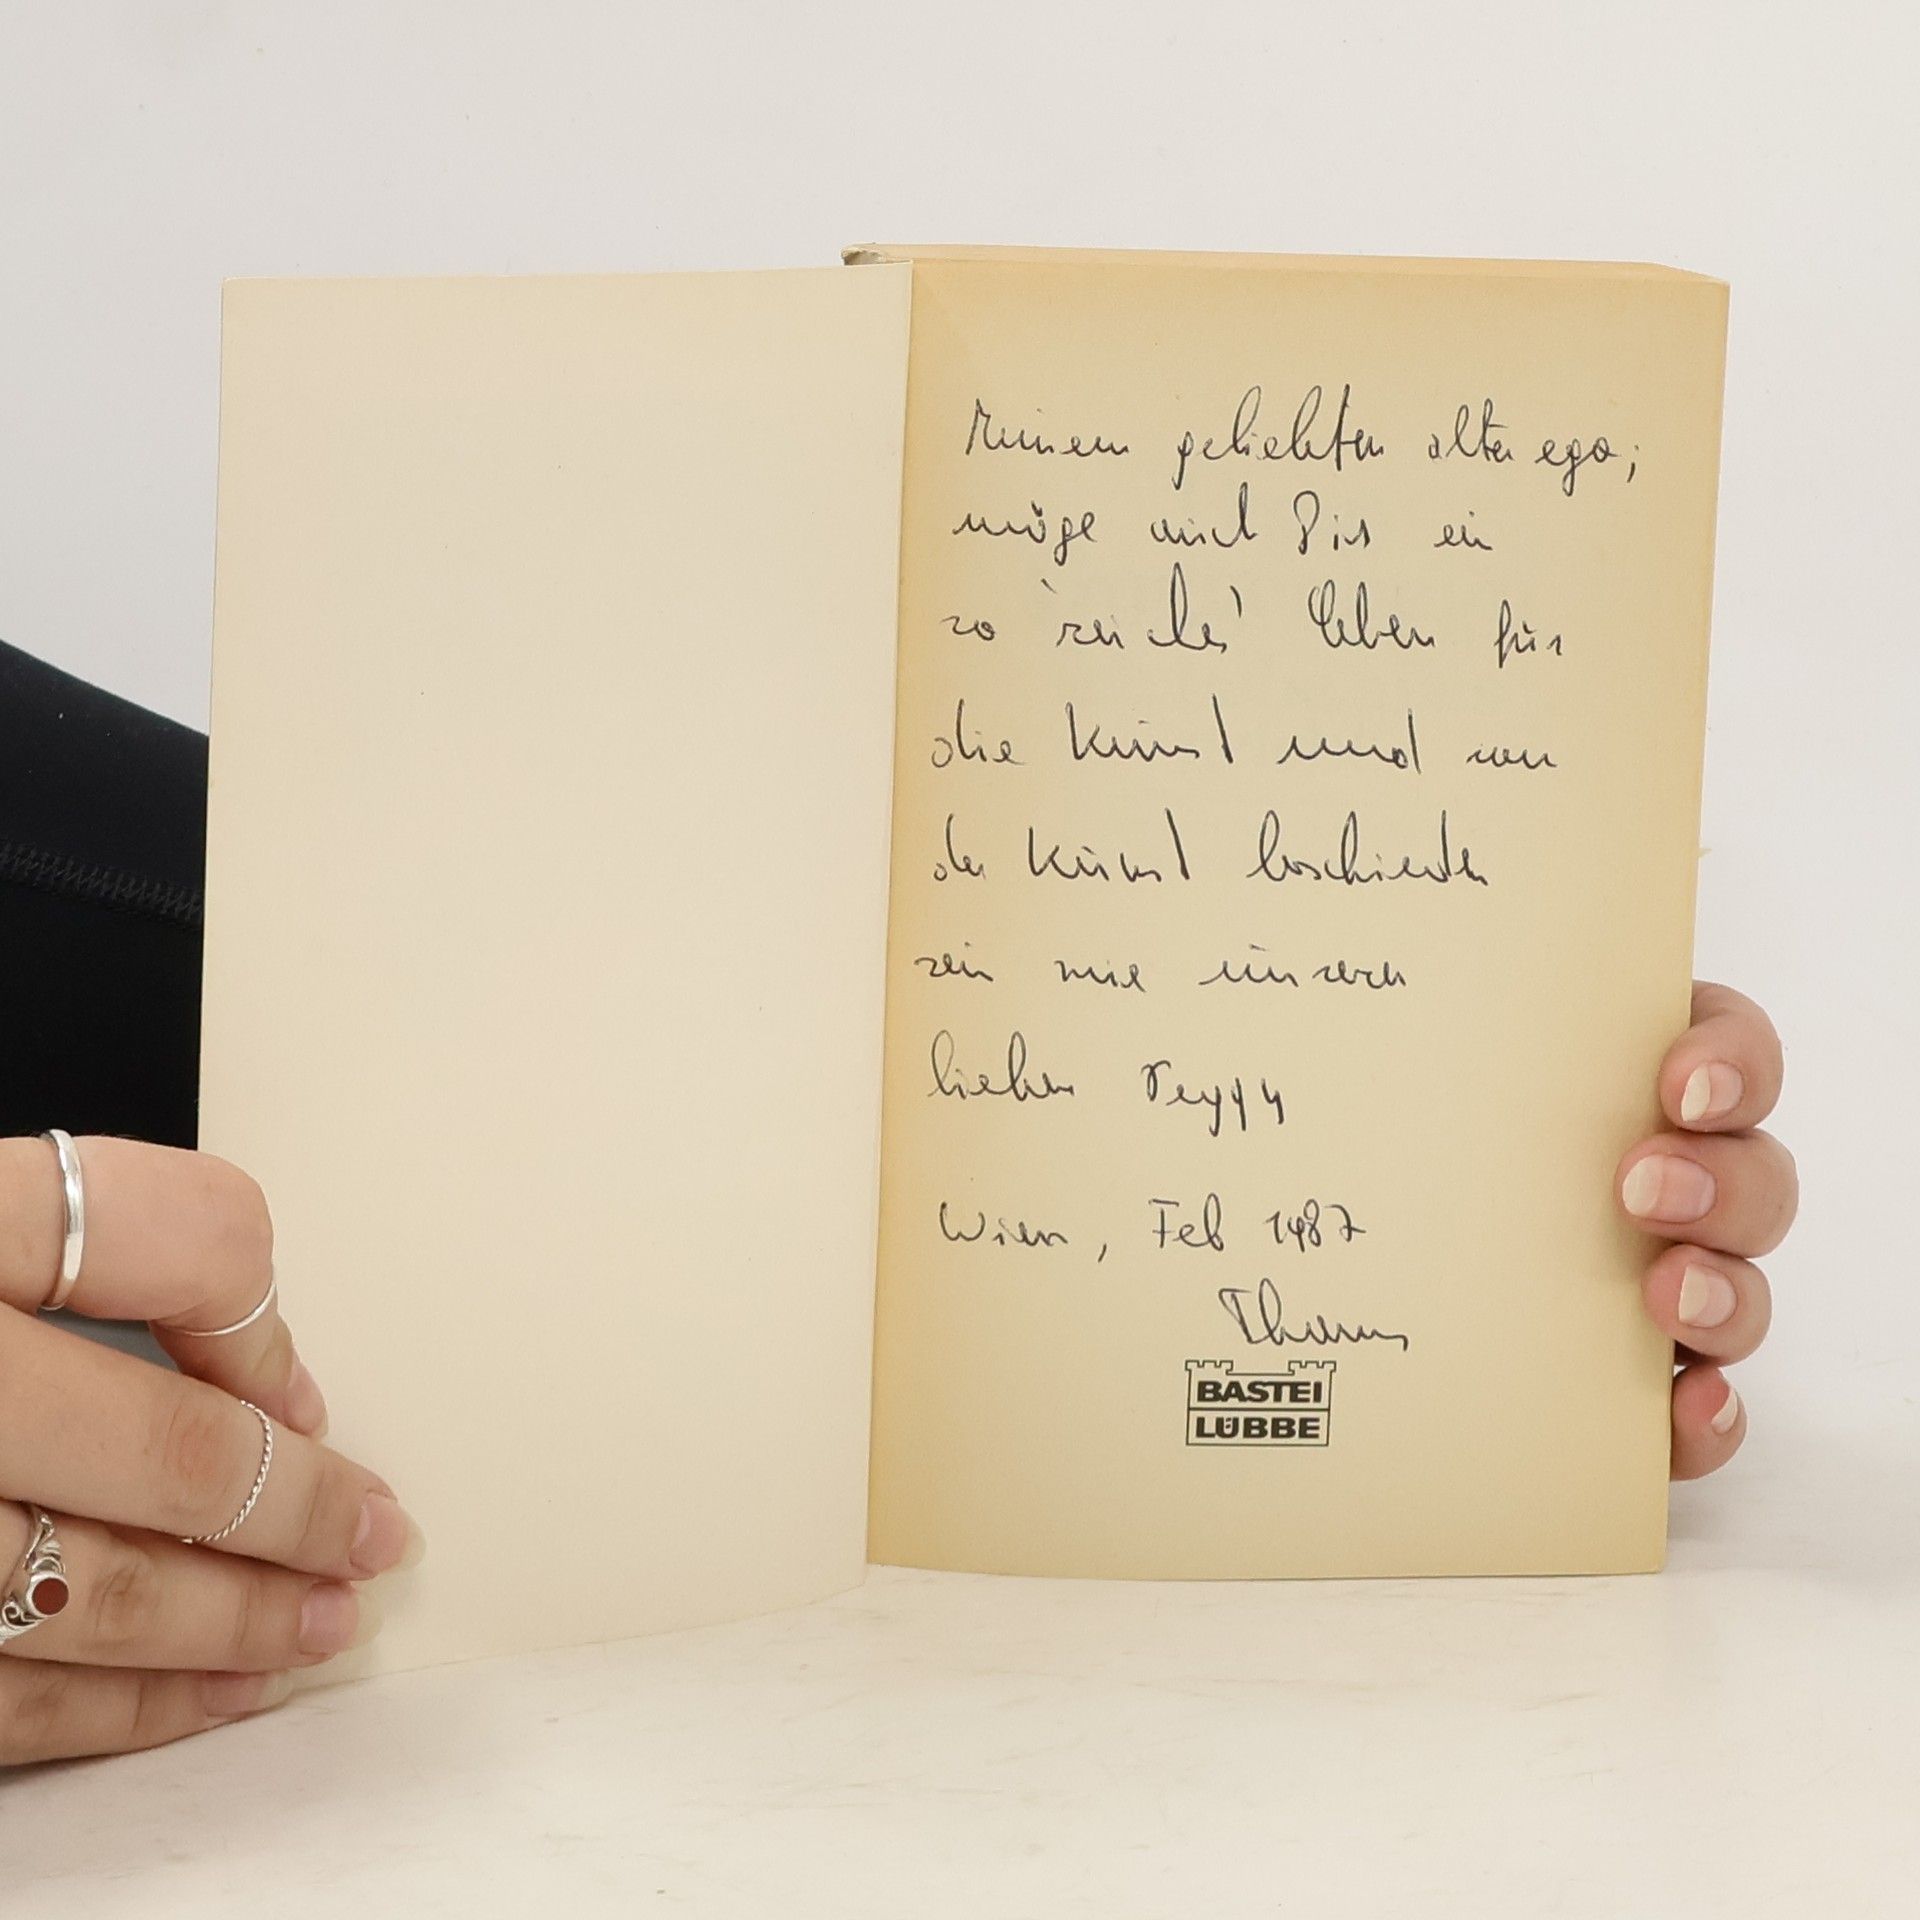 Meinem geliebten alter ego;
möge auch Dir ein
so 'reiches' Leben für
die Kunst und von
der Kunst beschieden
sein wie unserer
lieben Peggy
Wien, Feb 1987
Thomas
BASTEI
LÜBBE